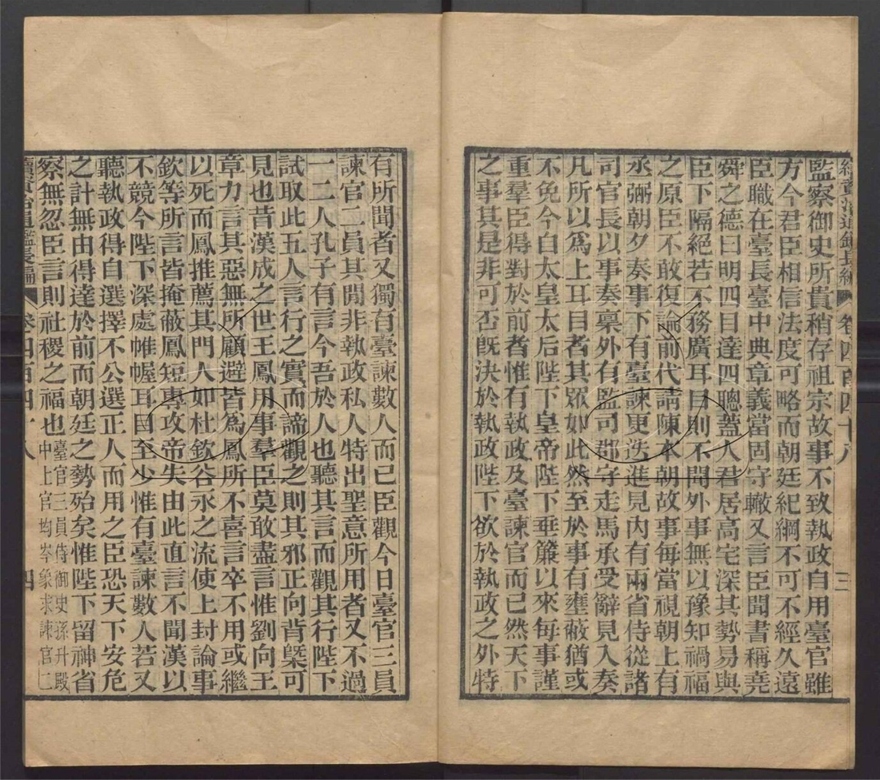 續資治通鑑長編 卷四百四十八 三
監察御史所貴稍存祖宗故事不致執政自用臺官雖
方今君臣相信法度可略而朝廷紀綱不可不經久遠
臣職在臺長臺中典章義當固守轍又言臣聞書稱堯
舜之德曰明四目達四聰蓋人君居高宅深其勢易與
臣下隔絕若不務廣耳目則不聞外事無以豫知禍福
之原臣不敢復論前代請陳本朝故事每當視朝上有
丞弼朝夕奏事下有臺諫更迭進見內有兩省侍從諸
司官長以事奏稟外有監司郡守走馬承受辭見入奏
凡所以爲上耳目者其眾如此然至於事有壅蔽猶或
不免今白太皇太后陛下皇帝陛下垂簾以來每事謹
重羣臣得對於前者惟有執政及臺諫官而已然天下
之事其是非可否旣決於執政陛下欲於執政之外特
有所聞者又獨有臺諫數人而已臣觀今日臺官三員
諫官二員其閒非執政私人特出聖意所用者又不過
一二人孔子有言今吾於人也聽其言而觀其行陛下
試取此五人言行之實而諦觀之則其邪正向背槩可
見也昔漢成之世王鳳用事羣臣莫敢盡言惟劉向王
章力言其惡無所顧避皆爲鳳所不喜言卒不用或繼
以死而鳳推薦其門人如杜欽谷永之流使上封論事
欽等所言皆掩蔽鳳短專攻帝失由此直言不聞漢以
不競今陛下深處帷幄耳目至少惟有臺諫數人若又
聽執政得自選擇不公選正人而用之臣恐天下安危
之計無由得達於前而朝廷之勢殆矣惟陛下留神省
察無忽臣言則社稷之福也臺官三員侍御史孫升殿
中上官均岑象求諫官二
續資治通鑑長編 卷四百四十八 四